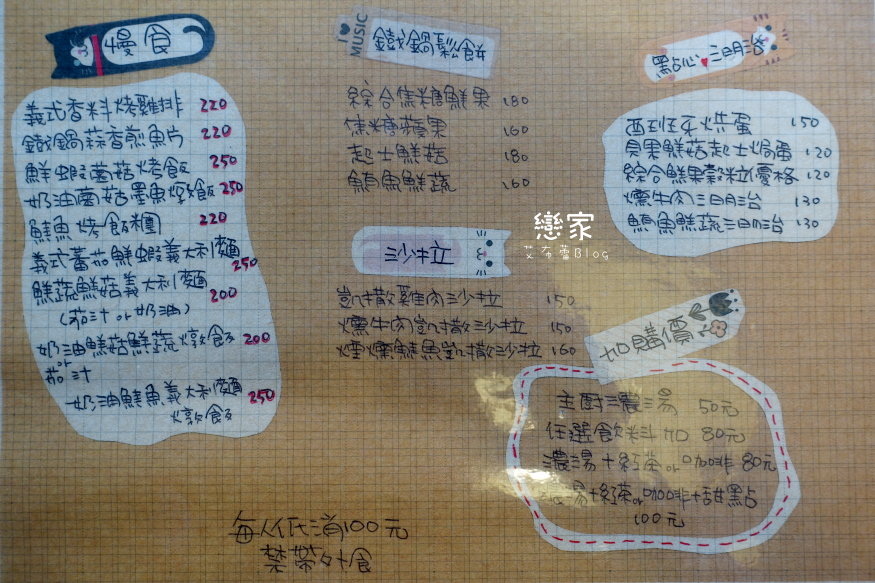 慢食
義式香料烤雞排 220
鐵鍋蒜香煎魚片 220
鮮蝦菌菇烤飯 250
奶油菌菇墨魚燉飯 250
鮭魚烤飯糰 220
義式蕃茄鮮蝦義大利麵 250
鮮蔬鮮菇義大利麵 200
(茄汁or奶油)
奶油鮮菇鮮蔬燉飯 200
or
茄汁
奶油鮭魚義大利麵 250
燉飯
I ♥ MUSIC
鐵鍋鬆餅
綜合焦糖鮮果 180
焦糖蘋果 160
起士鮮菇 180
鮪魚鮮蔬 160
沙拉
凱撒雞肉沙拉 150
燻牛肉凱撒沙拉 150
煙燻鮭魚凱撒沙拉 160
點心♥三明治
西班牙烘蛋 150
貝果鮮菇起士焗蛋 120
綜合鮮果穀粒優格 120
燻牛肉三明治 130
鮪魚鮮蔬三明治 130
戀家
艾布蕾Blog
加購價
主廚濃湯 50元
任選飲料加 80元
濃湯+紅茶or咖啡 80元
濃湯+紅茶or咖啡+甜點
100元
每人低消100元
禁帶外食